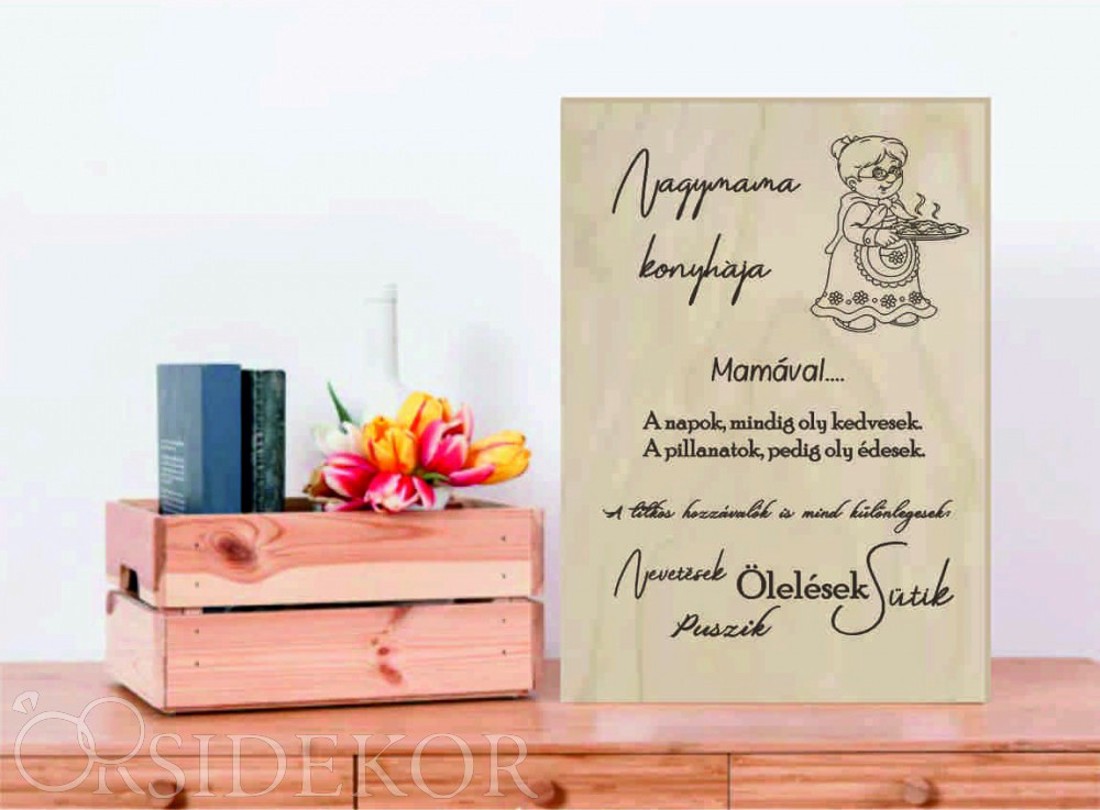 Nagymama
konyhàja
Mamával....
A napok, mindig oly kedvesek.
A pillanatok, pedig oly édesek.
A titkos hozzávalók is mind különlegesek:
Nevetések Ölelések Sütik
Puszik
ORSIDEKOR